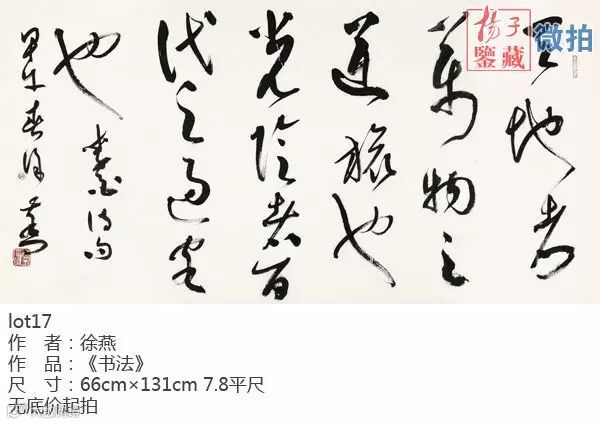 楊子
鑒藏
微拍
天地者
萬物之
逆旅也
光陰者百
代之過客
也 李白诗句
甲午春徐燕
lot17
作 者:徐燕
作 品:《书法》
尺 寸:66cm×131cm 7.8平尺
无底价起拍